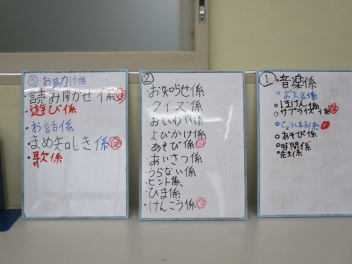 ③お助け係
・読み聞かせ係
・遊び係
・お話係
・まめ知しき係
・歌係
②
・お知らせ係
・クイズ係
・おいわい係
・よびかけ係
・あそび係
・あいさつ係
・うらない係
・ヒント係
・ひま係
・けんこう係
①音楽係
・ほけん係
・サプライズ係
・あそび係
・時間係